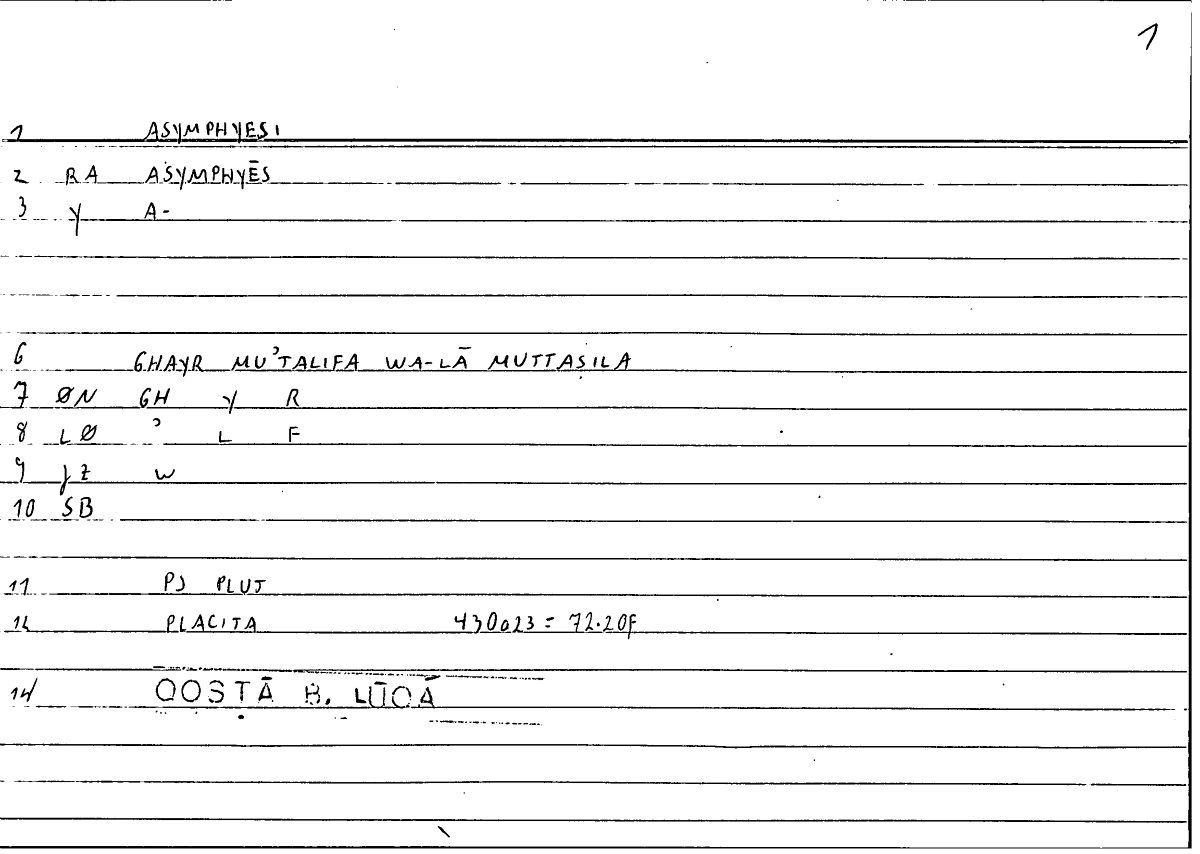 1
1 ASYMPHYES1
2 RA ASYMPHYĒS
3 Y A-
6 GHAYR MUʾTALIFA WA-LĀ MUTTAṢILA
7 ØN GH Y R
8 LØ ʾ L F
9 JZ W
10 SB
11 PS PLUT
12 PLACITA 430a23 = 72.20F
14 QOSṬĀ B. LŪQĀ